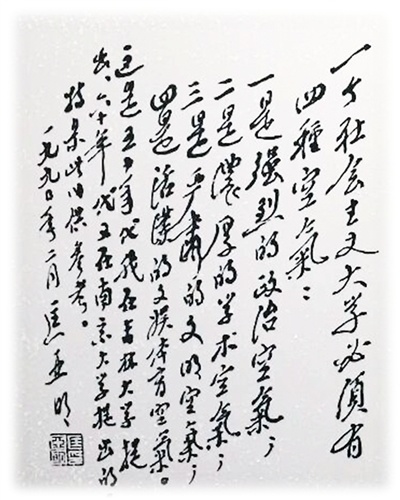 一个社会主义大学必须有
四種空氣：
一是强烈的政治空氣；
二是濃厚的学术空氣；
三是严肃的文明空氣；
四是活潑的文娱体育空氣。
这是五十年代我在吉林大学提
出、六十年代又在南京大学提出的
特录此以供参考。
一九九〇年二月 匡亚明